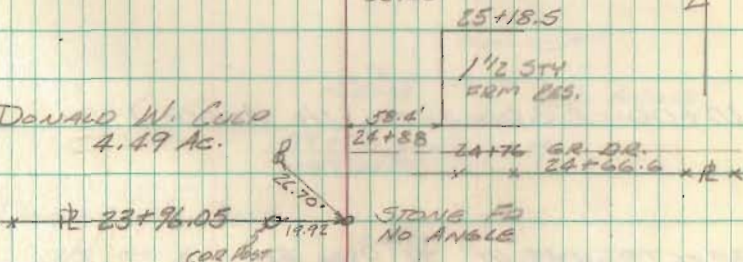 25+18.5
1 1/2 STY
FRM RES.
DONALD W. CULP
4.49 AC.
58.4'
24+88
24+76 GR. DR.
24+66.6
26.70'
23+96.05
19.92
STONE FD
NO ANGLE
COR POST